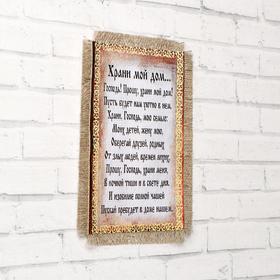 Храни мой дом...
Господь! Прошу, храни мой дом!
Пусть будет нам уютно в нем.
Храни, Господь, мою семью:
Моих детей, жену мою.
Оберегай друзей, родных
От злых людей, времен лихих.
Прошу, Господь, храни меня,
В ночной тиши и в свете дня.
И изобилие полной чашей
Пускай пребудет в доме нашем.